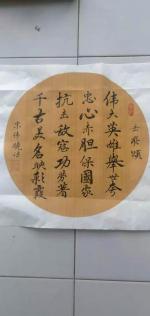 岳飛頌
偉大英雄舉世夸
忠心赤胆保國家
抗击敌寇功劳著
千古美名映彩霞